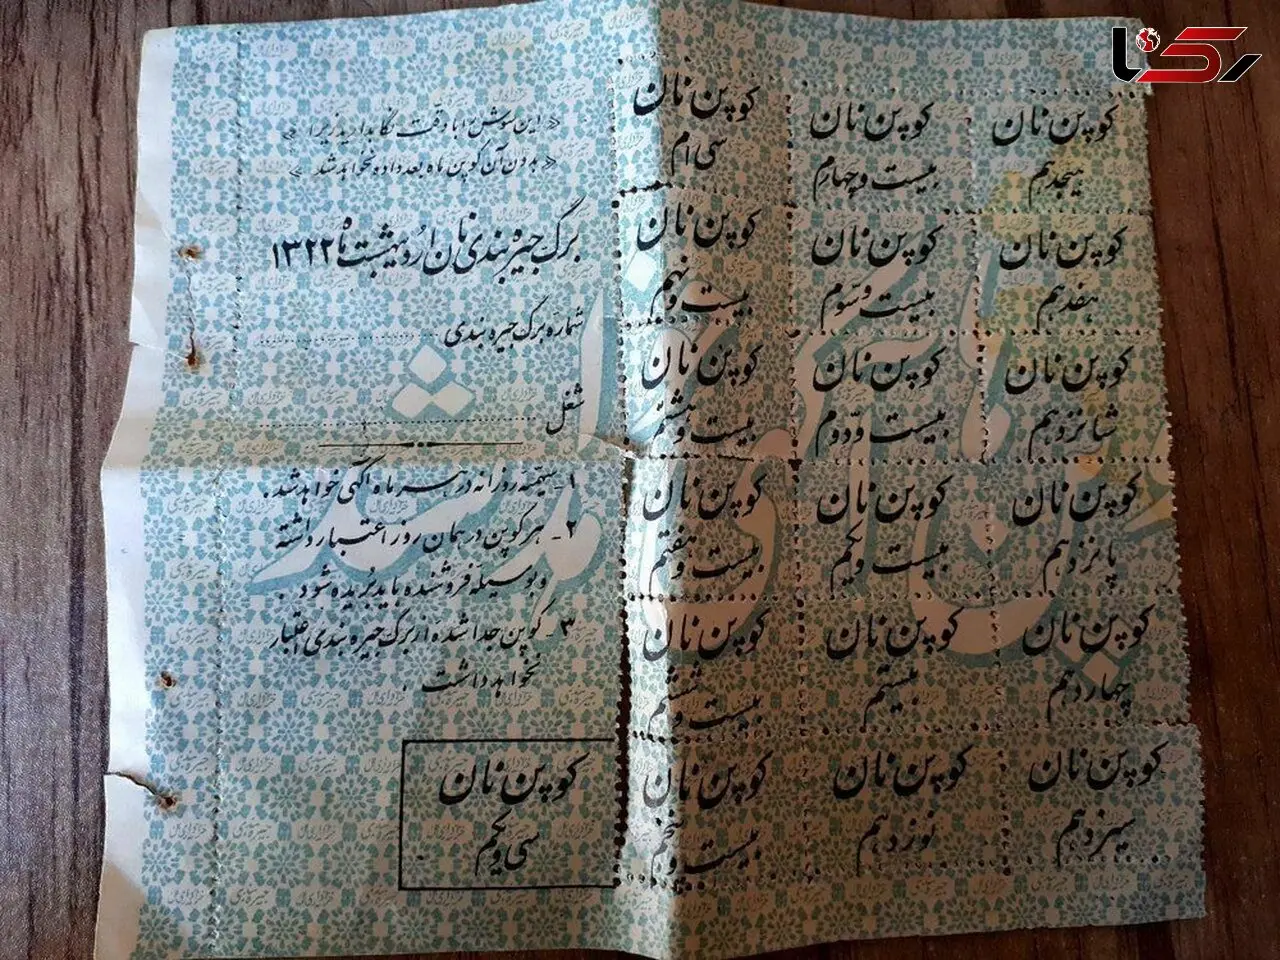 رکنا
« این سوش را با دقت نگاهدارید زیرا »
« بدون آن کوپن ماه بعد داده نخواهد شد »
برگ جیره بندی نان اردیبهشت ماه ۱۳۲۲
شماره برگ جیره بندی
شغل
۱- سهمیه روزانه در هر ماه آگهی خواهد شد.
۲- هر کوپن در همان روز اعتبار داشته
و بوسیله فروشنده باید بریده شود.
۳- کوپن جدا شده از برگ جیره بندی اعتبار
نخواهد داشت.
کوپن نان
سی و یکم
کوپن نان
هیجدهم
کوپن نان
بیست و چهارم
کوپن نان
سی ام
کوپن نان
هفدهم
کوپن نان
بیست و سوم
کوپن نان
بیست و نهم
کوپن نان
شانزدهم
کوپن نان
بیست و دوم
کوپن نان
بیست و هشتم
کوپن نان
پانزدهم
کوپن نان
بیست و یکم
کوپن نان
بیست و هفتم
کوپن نان
چهاردهم
کوپن نان
بیستم
کوپن نان
بیست و ششم
کوپن نان
سیزدهم
کوپن نان
نوزدهم
کوپن نان
بیست و پنجم